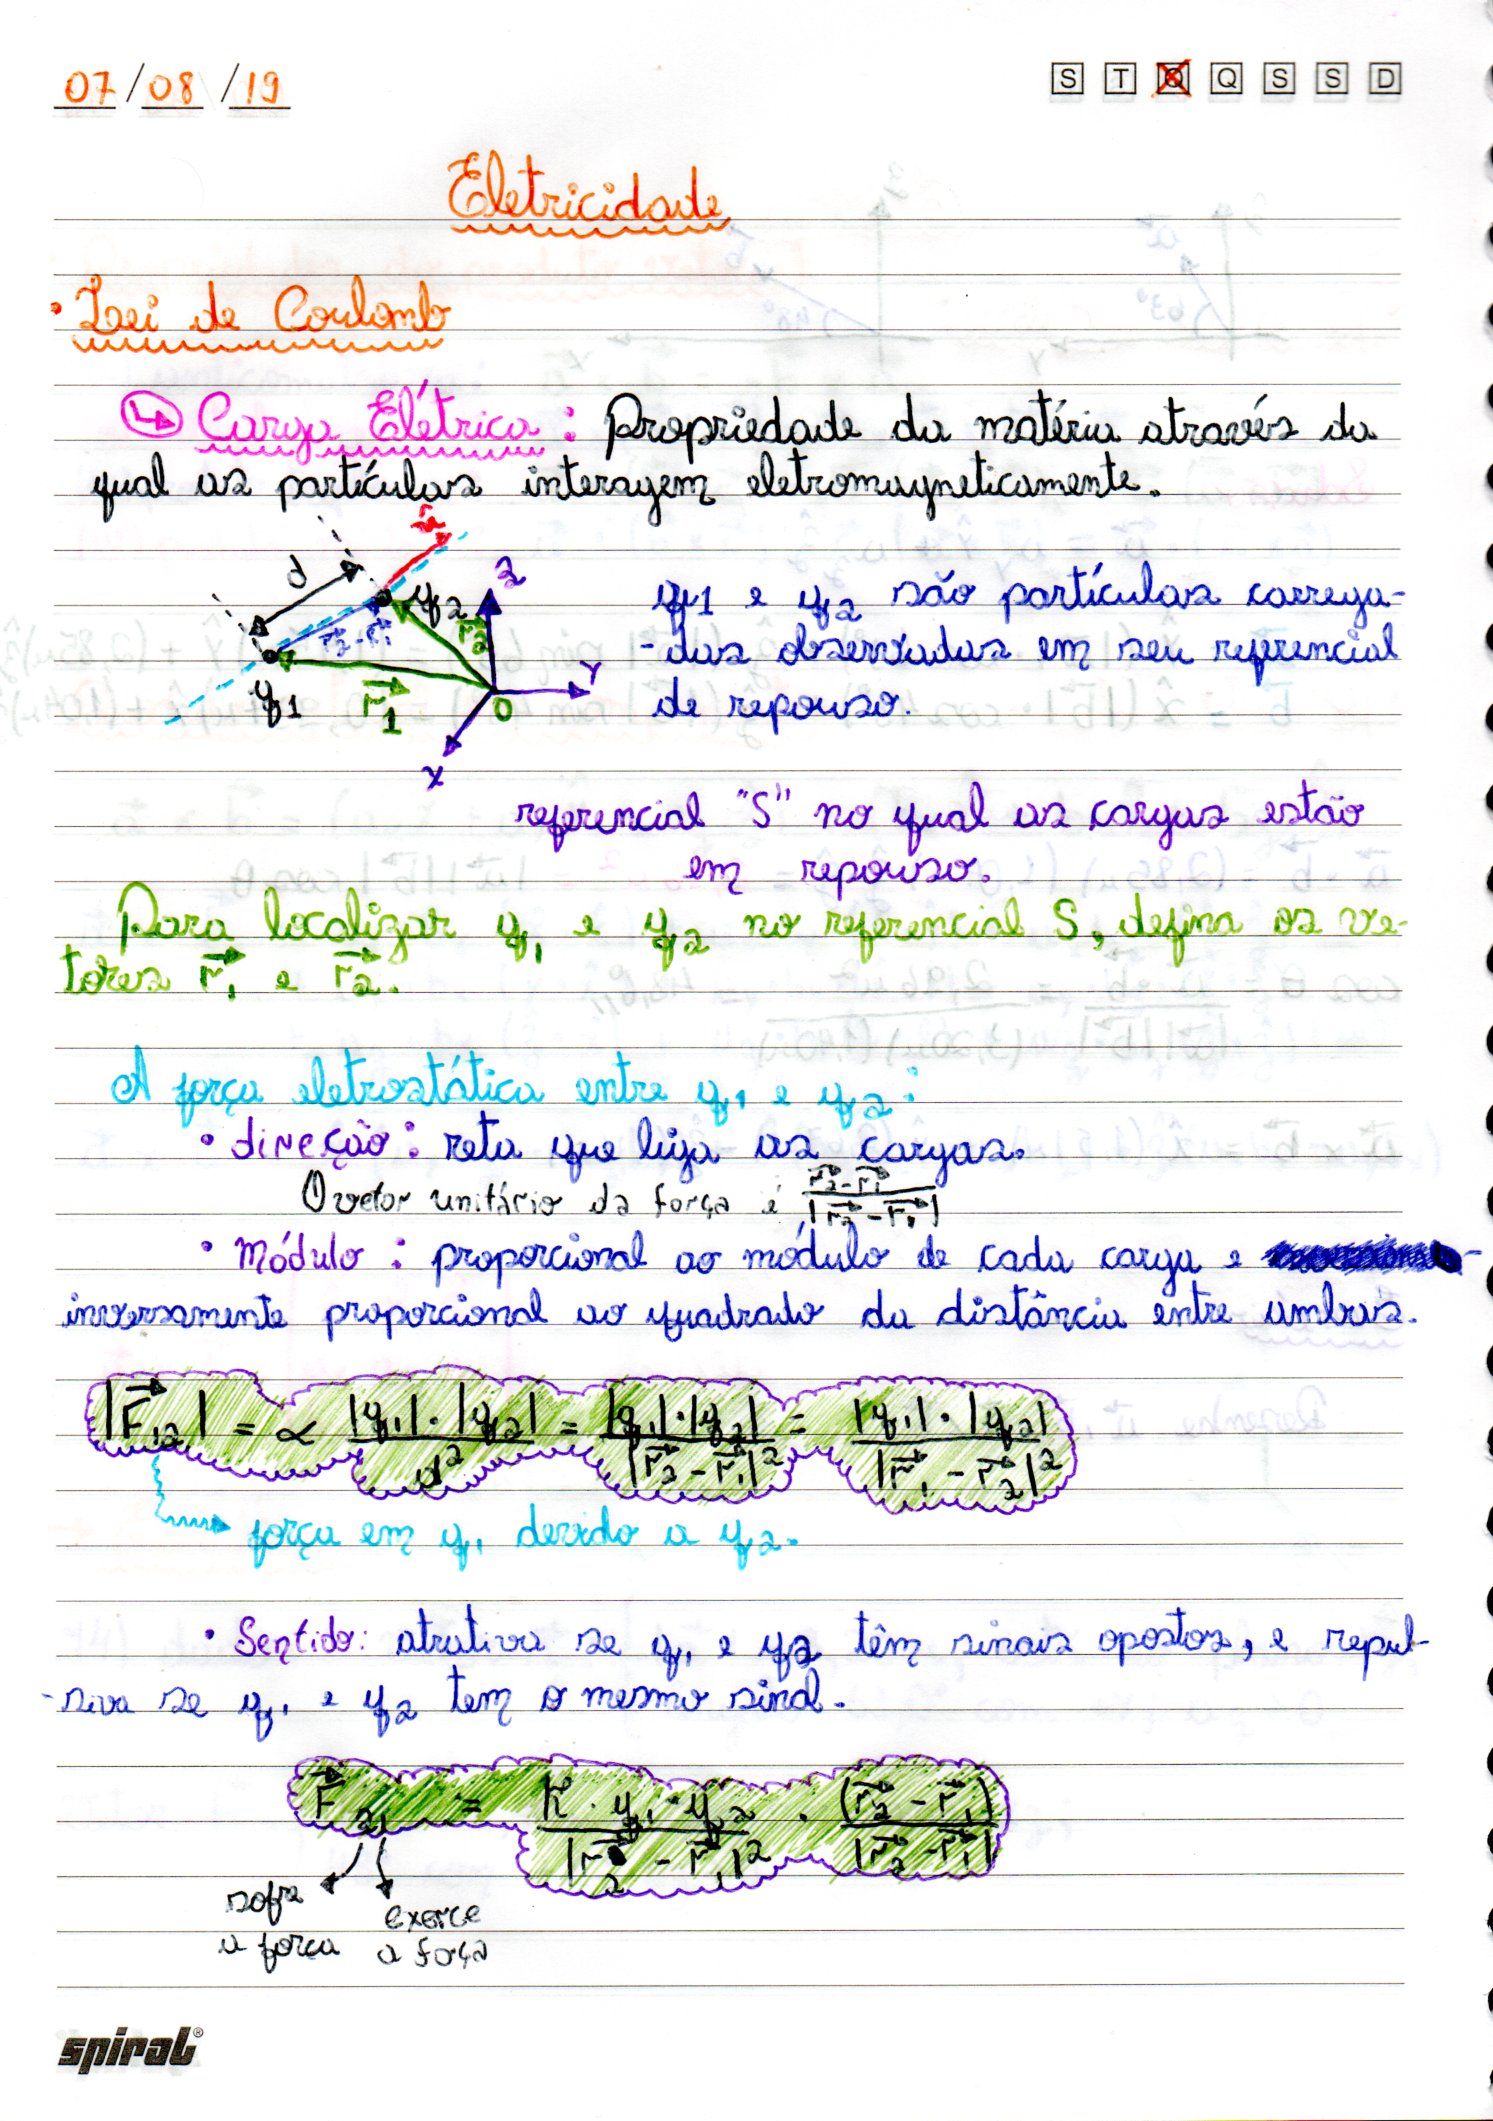 07/08/19
S T Q Q S S D
Eletricidade
• Lei de Coulomb
↳ Carga Elétrica: Propriedade da matéria através da
qual as partículas interagem eletromagneticamente.
d
q2
r⃗2
r⃗2-r⃗1
q1
r⃗1
0
Z
Y
X
q1 e q2 são partículas carrega-
-das observadas em seu referencial
de repouso.
referencial "S" no qual as cargas estão
em repouso.
Para localizar q1 e q2 no referencial S, defina os ve-
tores r⃗1 e r⃗2.
A força eletrostática entre q1 e q2:
• direção: reta que liga as cargas.
O vetor unitário da força é (r⃗2-r⃗1)/|r⃗2-r⃗1|
• Módulo: proporcional ao módulo de cada carga e
inversamente proporcional ao quadrado da distância entre ambas.
|F⃗12| = ∝ |q1|·|q2|/d² = |q1|·|q2|/|r⃗2-r⃗1|² = |q1|·|q2|/|r⃗1-r⃗2|²
força em q1 devido a q2.
• Sentido: atrativa se q1 e q2 têm sinais opostos, e repul-
-siva se q1 e q2 tem o mesmo sinal.
F⃗21 = K·q1·q2/|r⃗2-r⃗1|² · (r⃗2-r⃗1)/|r⃗2-r⃗1|
sofre
a força
exerce
a força
spiral®